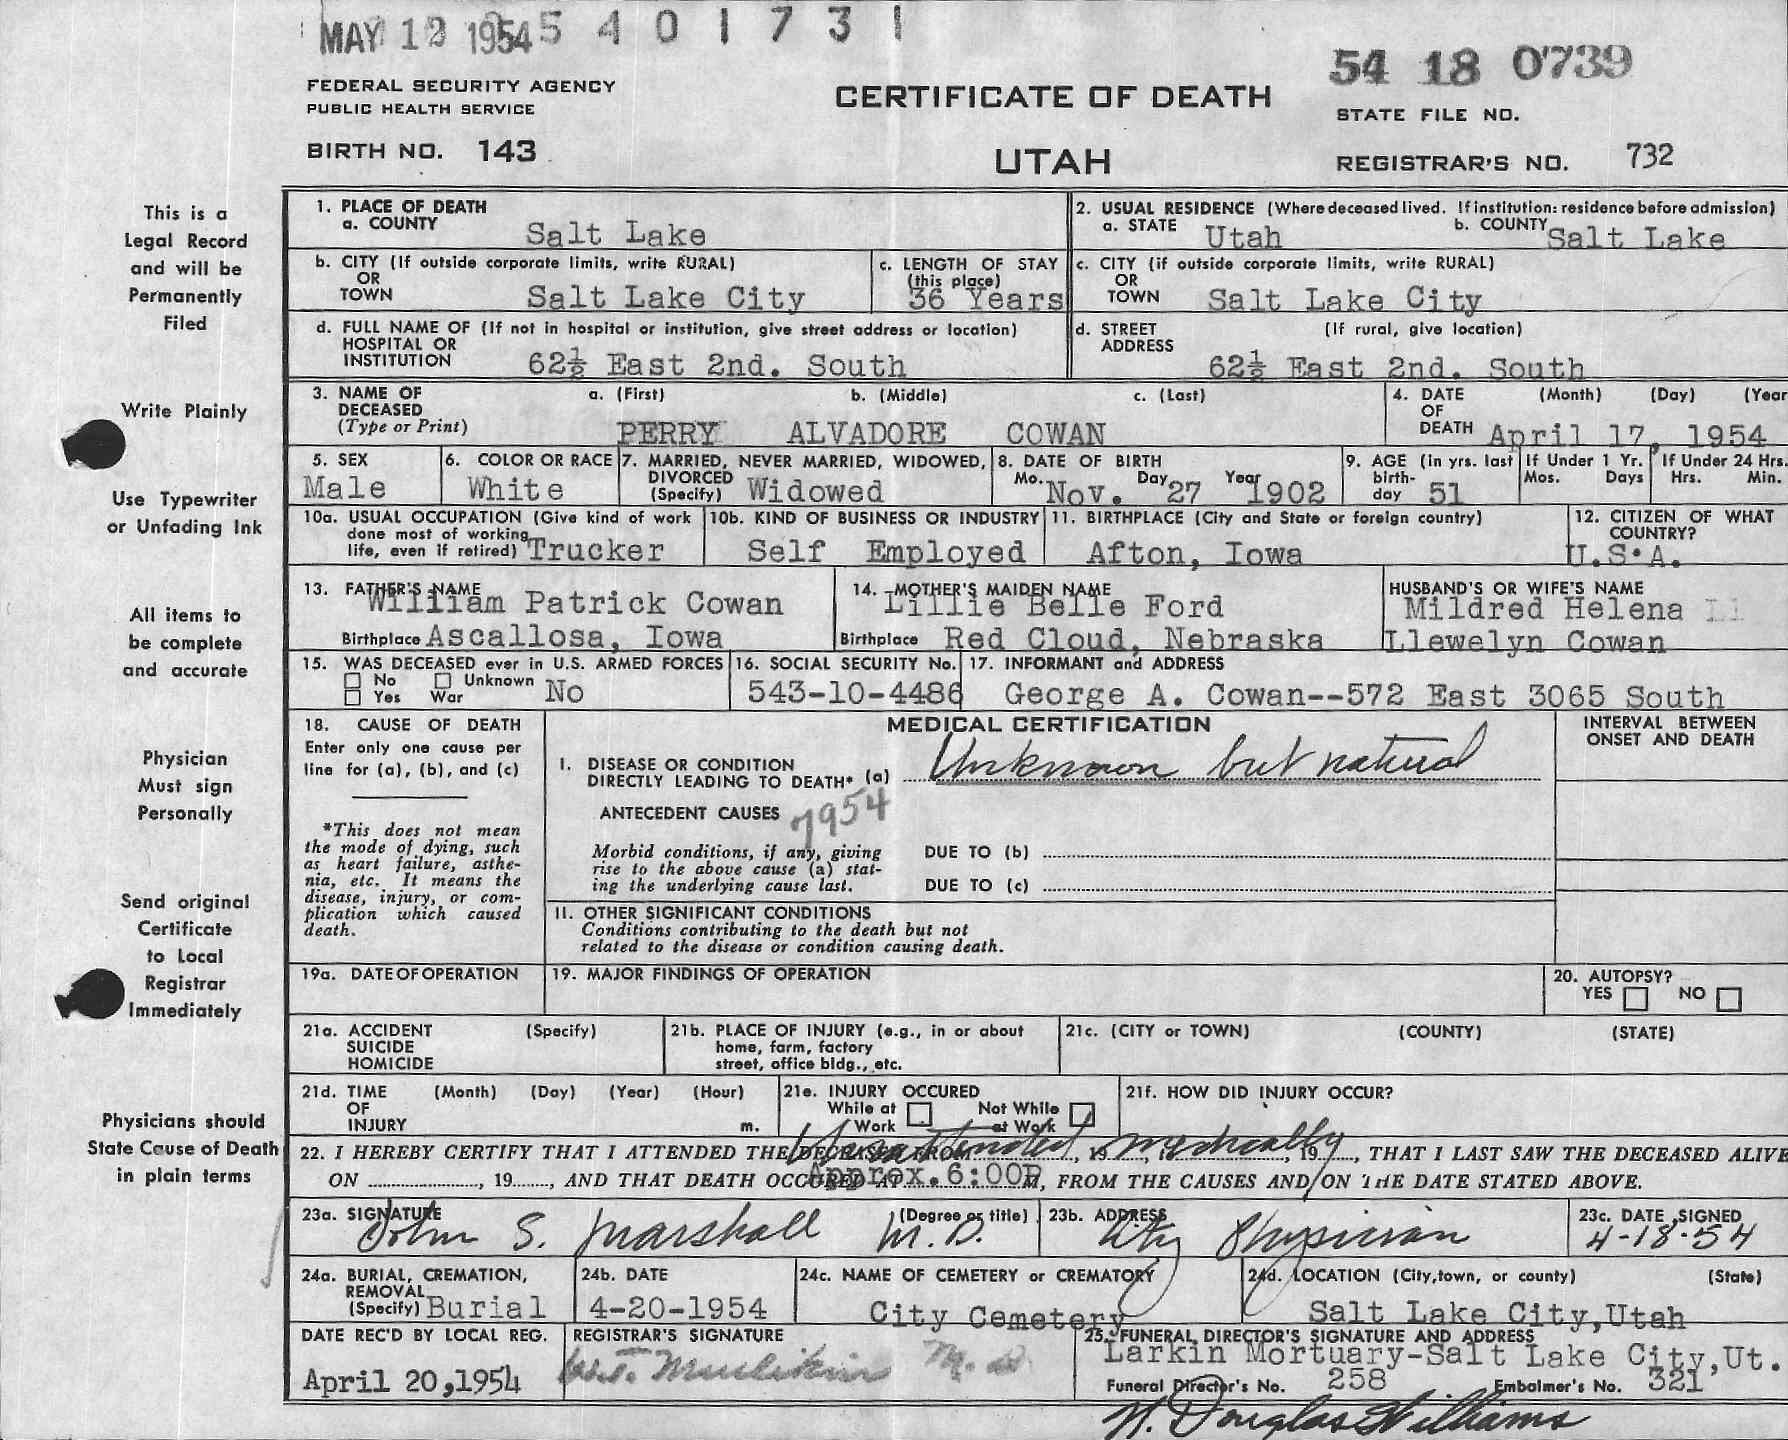 MAY 12 1954 5 4 0 1 7 3 1
54 18 0739
FEDERAL SECURITY AGENCY
PUBLIC HEALTH SERVICE
CERTIFICATE OF DEATH
STATE FILE NO.
BIRTH NO. 143
UTAH
REGISTRAR'S NO. 732
This is a
Legal Record
and will be
Permanently
Filed
Write Plainly
Use Typewriter
or Unfading Ink
All items to
be complete
and accurate
Physician
Must sign
Personally
Send original
Certificate
to Local
Registrar
Immediately
Physicians should
State Cause of Death
in plain terms
1. PLACE OF DEATH
a. COUNTY Salt Lake
2. USUAL RESIDENCE (Where deceased lived. If institution: residence before admission)
a. STATE Utah b. COUNTY Salt Lake
b. CITY (If outside corporate limits, write RURAL)
OR
TOWN Salt Lake City
c. LENGTH OF STAY
(this place)
36 Years
c. CITY (if outside corporate limits, write RURAL)
OR
TOWN Salt Lake City
d. FULL NAME OF (If not in hospital or institution, give street address or location)
HOSPITAL OR
INSTITUTION 62½ East 2nd. South
d. STREET (If rural, give location)
ADDRESS
62½ East 2nd. South
3. NAME OF a. (First) b. (Middle) c. (Last)
DECEASED
(Type or Print) PERRY ALVADORE COWAN
4. DATE (Month) (Day) (Year
OF
DEATH April 17, 1954
5. SEX
Male
6. COLOR OR RACE
White
7. MARRIED, NEVER MARRIED, WIDOWED,
DIVORCED
(Specify) Widowed
8. DATE OF BIRTH
Mo. Nov. Day 27 Year 1902
9. AGE (in yrs. last
birth-
day 51
If Under 1 Yr.
Mos. Days
If Under 24 Hrs.
Hrs. Min.
10a. USUAL OCCUPATION (Give kind of work
done most of working
life, even if retired) Trucker
10b. KIND OF BUSINESS OR INDUSTRY
Self Employed
11. BIRTHPLACE (City and State or foreign country)
Afton, Iowa
12. CITIZEN OF WHAT
COUNTRY?
U.S.A.
13. FATHER'S NAME
William Patrick Cowan
Birthplace Ascallosa, Iowa
14. MOTHER'S MAIDEN NAME
Lillie Belle Ford
Birthplace Red Cloud, Nebraska
HUSBAND'S OR WIFE'S NAME
Mildred Helena Ll
Llewelyn Cowan
15. WAS DECEASED ever in U.S. ARMED FORCES
No Unknown No
Yes War
16. SOCIAL SECURITY No.
543-10-4486
17. INFORMANT and ADDRESS
George A. Cowan--572 East 3065 South
18. CAUSE OF DEATH
Enter only one cause per
line for (a), (b), and (c)
*This does not mean
the mode of dying, such
as heart failure, asthe-
nia, etc. It means the
disease, injury, or com-
plication which caused
death.
MEDICAL CERTIFICATION
I. DISEASE OR CONDITION
DIRECTLY LEADING TO DEATH* (a) Unknown but natural
ANTECEDENT CAUSES
7954
Morbid conditions, if any, giving
rise to the above cause (a) stat-
ing the underlying cause last.
DUE TO (b)
DUE TO (c)
II. OTHER SIGNIFICANT CONDITIONS
Conditions contributing to the death but not
related to the disease or condition causing death.
INTERVAL BETWEEN
ONSET AND DEATH
19a. DATE OF OPERATION
19. MAJOR FINDINGS OF OPERATION
20. AUTOPSY?
YES NO
21a. ACCIDENT (Specify)
SUICIDE
HOMICIDE
21b. PLACE OF INJURY (e.g., in or about
home, farm, factory
street, office bldg., etc.
21c. (CITY or TOWN) (COUNTY) (STATE)
21d. TIME (Month) (Day) (Year) (Hour)
OF
INJURY m.
21e. INJURY OCCURED
While at Work Not While at Work
21f. HOW DID INJURY OCCUR?
22. I HEREBY CERTIFY THAT I ATTENDED THE DECEASED FROM Unattended, 19, medically, 19, THAT I LAST SAW THE DECEASED ALIVE
ON , 19, AND THAT DEATH OCCURED AT Approx. 6:00P M, FROM THE CAUSES AND ON THE DATE STATED ABOVE.
23a. SIGNATURE (Degree or title)
John S. Marshall M.D.
23b. ADDRESS
City Physician
23c. DATE SIGNED
4-18-54
24a. BURIAL, CREMATION,
REMOVAL
(Specify) Burial
24b. DATE
4-20-1954
24c. NAME OF CEMETERY or CREMATORY
City Cemetery
24d. LOCATION (City, town, or county) (State)
Salt Lake City, Utah
DATE REC'D BY LOCAL REG.
April 20, 1954
REGISTRAR'S SIGNATURE
M.D.
25. FUNERAL DIRECTOR'S SIGNATURE AND ADDRESS
Larkin Mortuary-Salt Lake City, Ut.
Funeral Director's No. 258 Embalmer's No. 321
W. Douglas Williams